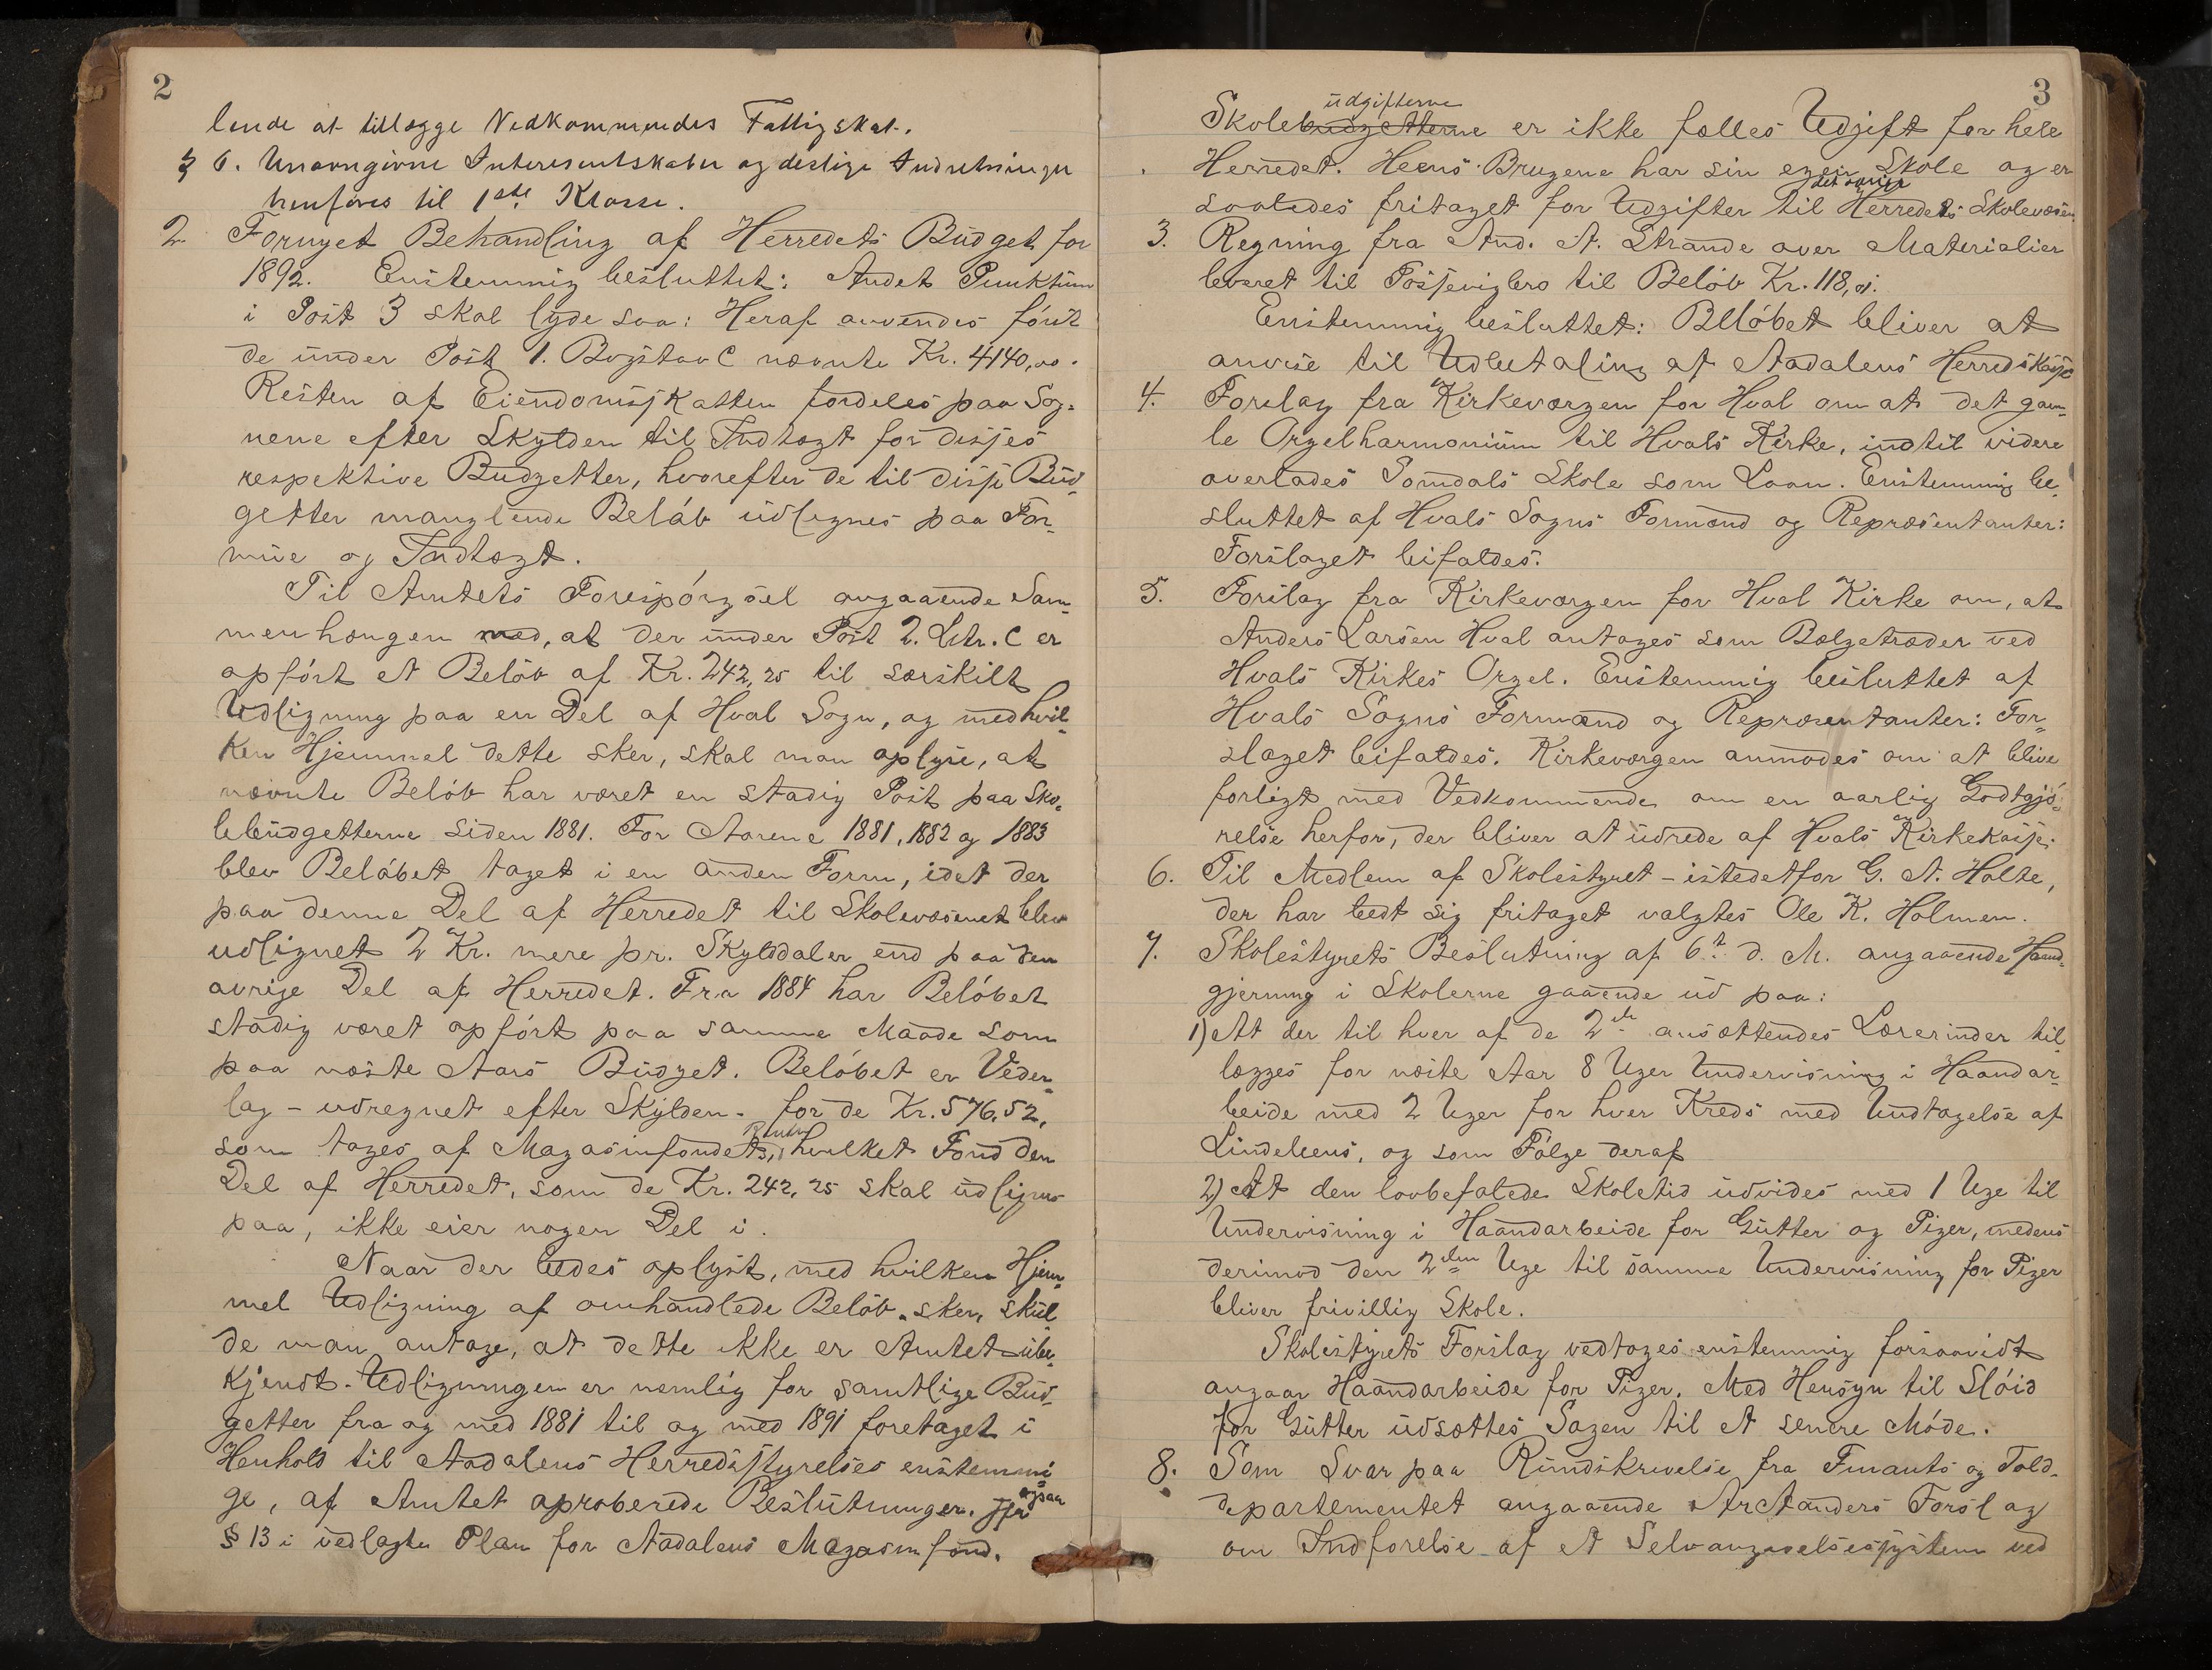 2
lende at tillægge Vedkommendes Fattigskat.
§ 6. Unavngivne Interesentskaber og deslige Indretninger
henføres til 1ste Klasse.
2. Fornyet Behandling af Herredets Budget for
1892. Enstemmig besluttet: Andet Punktum
i Post 3 skal lyde saa: Heraf anvendes först
de under Post 1. Bogstav C nævnte Kr. 4140,00.
Resten af Eiendomsskatten fordeles paa Sog-
nene efter Skylden til Indtægt for disses
respektive Budgetter, hvorefter de til disse Bud-
getter manglende Beløb udlignes paa For-
mue og Indtægt.
Til Amtets Forespörgsel angaaende Sam-
menhængen med, at der under Post 2. Litr. C er
opfört et Belöb af Kr. 242,25 til særskilt
Udligning paa en Del af Hval Sogn, og med hvil-
ken Hjemmel dette sker, skal man oplyse, at
nævnte Belöb har været en stadig Post paa Sko-
lebudgetterne siden 1881. For Aarene 1881, 1882 og 1883
blev Belöbet taget i en anden Form, idet der
paa denne Del af Herredet til Skolevæsenet blev
udlignet 2 Kr. mere pr. Skylddaler end paa den
øvrige Del af Herredet. Fra 1884 har Belöbet
stadig været opfört paa samme Maade som
paa næste Aars Budget. Belöbet er Veder-
lag - udregnet efter Skylden - for de Kr. 576,52,
som tages af Magasinfondets Renter, hvilket Fond den
Del af Herredet, som de Kr. 242,25 skal udlignes
paa, ikke eier nogen Del i.
Naar der bedes oplyst, med hvilken Hjem-
mel Udligning af omhandlede Belöb sker, skul-
de man antage, at dette ikke er Amtet ube-
kjendt. Udligningen er nemlig for samtlige Bud-
getter fra og med 1881 til og med 1891 foretaget i
Henhold til Aadalens Herredsstyrelses enstemmi-
ge, af Amtet aproberede Beslutninger. Jfr ogsaa
§ 13 i vedlagte Plan for Aadalens Magasinfond.
3
Skolebudgetterne udgifterne er ikke fælles Udgift for hele
Herredet. Heens Brugene har sin egen Skole og er
saaledes fritaget for Udgifter til det øvrige Herredets Skolevæsen.
3. Regning fra And. A. Strande over Materialier
leveret til Fossevigbro til Belöb Kr. 118,01.
Enstemmig besluttet: Belöbet bliver at
anvise til Udbetaling af Aadalens Herredskasse
4. Forslag fra Kirkeværgen for Hval om at det gam-
le Orgelharmonium til Hvals Kirke, indtil videre
overlades Somdals Skole som Laan. Enstemmig be-
sluttet af Hvals Sogns Formænd og Repræsentanter:
Forslaget bifaldes.
5. Forslag fra Kirkeværgen for Hval Kirke om, at
Anders Larsen Hval antages som Bælgetræder ved
Hvals Kirkes Orgel. Enstemmig besluttet af
Hvals Sogns Formænd og Repræsentanter: For-
slaget bifaldes. Kirkeværgen anmodes om at blive
forligt med Vedkommende om en aarlig Godtgjö-
relse herfor, der bliver at udrede af Hvals Kirkekasse.
6. Til Medlem af Skolestyret - istedetfor G. A. Holte,
der har bedt sig fritaget valgtes Ole K. Holmen.
7. Skolestyrets Beslutning af 6te d. M. angaaende Haand-
gjerning i Skolerne gaaende ud paa:
1) At der til hver af de 2de ansættendes Lærerinder til-
lægges for næste Aar 8 Uger Undervisning i Haandar-
beide med 2 Uger for hver Kreds med Undtagelse af
Lindeleens, og som Følge deraf
2) At den lovbefalede Skoletid udvides med 1 Uge til
Undervisning i Haandarbeide for Gutter og Piger, medens
derimod den 2den Uge til samme Undervisning for Piger
bliver frivillig Skole.
Skolestyrets Forslag vedtages enstemmig forsaavidt
angaar Haandarbeide for Piger. Med Hensyn til Slöid
for Gutter udsættes Sagen til et senere Möde.
8. Som Svar paa Rundskrivelse fra Finants og Told-
departementet angaaende Arctanders Forslag
om Indførelse af et Selvangivelsessystem ved